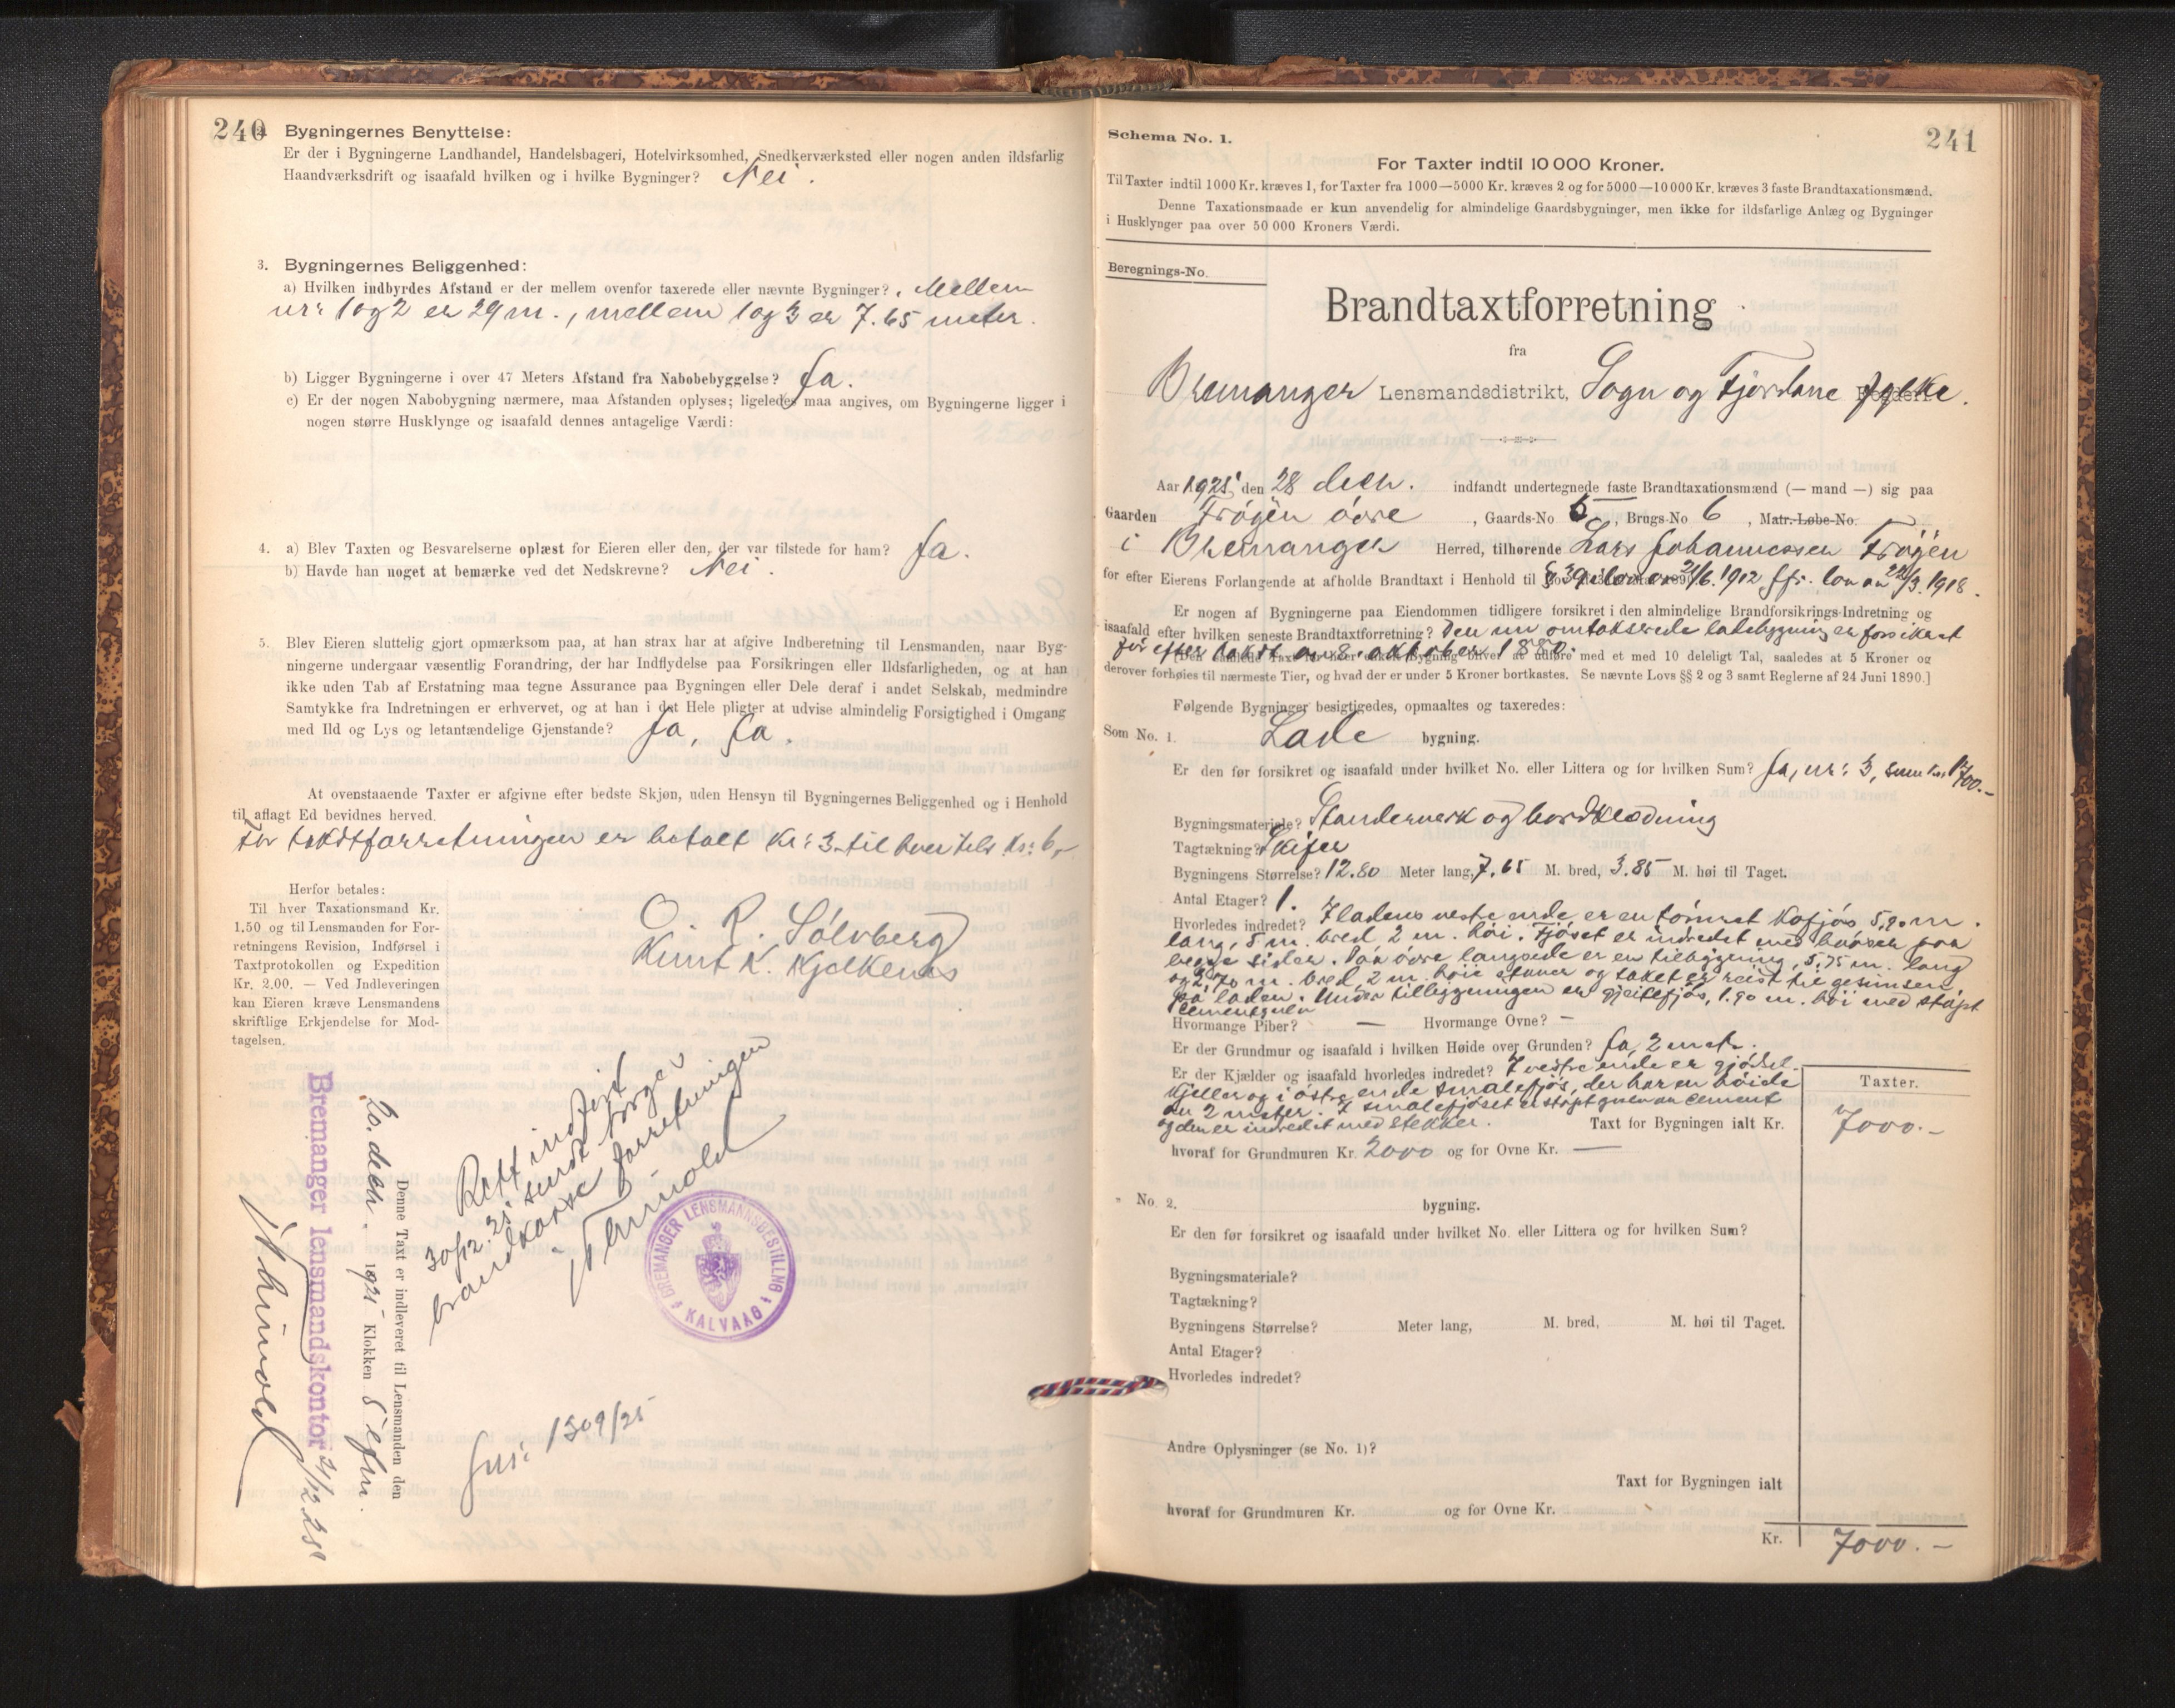 240
2. Bygningernes Benyttelse:
Er der i Bygningerne Landhandel, Handelsbageri, Hotelvirksomhed, Snedkerværksted eller nogen anden ildsfarlig
Haandværksdrift og isaafald hvilken og i hvilke Bygninger? Nei.
3. Bygningernes Beliggenhed:
a) Hvilken indbyrdes Afstand er der mellem ovenfor taxerede eller nævnte Bygninger? Mellem
nr: 1 og 2 er 29 m., mellem 1 og 3 er 7.65 meter.
b) Ligger Bygningerne i over 47 Meters Afstand fra Nabobebyggelse? Ja.
c) Er der nogen Nabobygning nærmere, maa Afstanden oplyses; ligeledes maa angives, om Bygningerne ligger i
nogen større Husklynge og isaafald dennes antagelige Værdi:
4. a) Blev Taxten og Besvarelserne oplæst for Eieren eller den, der var tilstede for ham? Ja.
b) Havde han noget at bemærke ved det Nedskrevne? Nei.
5. Blev Eieren sluttelig gjort opmærksom paa, at han strax har at afgive Indberetning til Lensmanden, naar Byg-
ningerne undergaar væsentlig Forandring, der har Indflydelse paa Forsikringen eller Ildsfarligheden, og at han
ikke uden Tab af Erstatning maa tegne Assurance paa Bygningen eller Dele deraf i andet Selskab, medmindre
Samtykke fra Indretningen er erhvervet, og at han i det Hele pligter at udvise almindelig Forsigtighed i Omgang
med Ild og Lys og letantændelige Gjenstande? Ja, Ja.
At ovenstaaende Taxter er afgivne efter bedste Skjøn, uden Hensyn til Bygningernes Beliggenhed og i Henhold
til aflagt Ed bevidnes herved.
For takstforretningen er betalt kr: 3 til hver tils. kr: 6,-
Herfor betales:
Til hver Taxationsmand Kr.
1.50 og til Lensmanden for For-
retningens Revision, Indførsel i
Taxtprotokollen og Expedition
Kr. 2.00. — Ved Indleveringen
kan Eieren kræve Lensmandens
skriftlige Erkjendelse for Mod-
tagelsen.
O. R. Sólvberg
Knut K. Kjelkenes
Rett indført
30/12.25. sendt
brandkasse forretningen
BREMANGER LENSMANNSBESTILLING
KALVAAG
Jnr: 1309/25
Denne Taxt er indleveret til Lensmanden den
20. decb. 1925 Klokken 5 efm.
Bremanger lensmandskontor 21/12.25
241
Schema No. 1.
For Taxter indtil 10 000 Kroner.
Til Taxter indtil 1000 Kr. kræves 1, for Taxter fra 1000—5000 Kr. kræves 2 og for 5000—10 000 Kr. kræves 3 faste Brandtaxationsmænd.
Denne Taxationsmaade er kun anvendelig for almindelige Gaardsbygninger, men ikke for ildsfarlige Anlæg og Bygninger
i Husklynger paa over 50 000 Kroners Værdi.
Beregnings-No.
Brandtaxtforretning
fra
Bremanger Lensmandsdistrikt, Sogn og Fjordane fylke.
Aar 1925 den 28 decb. indfandt undertegnede faste Brandtaxationsmænd (— mand —) sig paa
Gaarden Frógen óvre, Gaards-No 5, Brugs-No 6, Matr.-Løbe-No.
i Bremanger Herred, tilhørende Lars Johannessen Frógen
for efter Eierens Forlangende at afholde Brandtaxt i Henhold til § 39 i lov av 21/6.1912 jfr. lov av 22/3.1918.
Er nogen af Bygningerne paa Eiendommen tidligere forsikret i den almindelige Brandforsikrings-Indretning og
isaafald efter hvilken seneste Brandtaxtforretning? Den nu omtakserede ladebygning er forsikret
før efter takst av 8. oktober 1880.
[Den samlede Taxt for hver enkelt Bygning bliver at udføre med et med 10 deleligt Tal, saaledes at 5 Kroner og
derover forhøies til nærmeste Tier, og hvad der er under 5 Kroner bortkastes. Se nævnte Lovs §§ 2 og 3 samt Reglerne af 24 Juni 1890.]
Følgende Bygninger besigtigedes, opmaaltes og taxeredes:
Som No. 1. Lade bygning.
Er den før forsikret og isaafald under hvilket No. eller Littera og for hvilken Sum? Ja, nr: 3, sum kr. 1700.-
Bygningsmateriale? Standerverk og bordklædning
Tagtækning? Skifer
Bygningens Størrelse? 12.80 Meter lang, 7.65 M. bred, 3.85 M. høi til Taget.
Antal Etager? 1.
Hvorledes indredet? I ladens vestre ende er en tómret kofjós 5,90 m.
lang, 5 m. bred 2 m. hói. Fjóset er indredet med baaser paa
begge sider. Paa óvre langside er en tilbygging, 5,75 m. lang
og 2,70 m. bred, 2 m. hóie staver og taket er reist til gesimsen
på laden. Under tilbyggningen er gjeitefjós, 1.90 m. hói med stópt
cementgulv
Hvormange Piber? — Hvormange Ovne? —
Er der Grundmur og isaafald i hvilken Høide over Grunden? Ja 2 met.
Er der Kjælder og isaafald hvorledes indredet? I vestre ende er gjódsel-
kjeller og i óstre ende smalefjós, der har en hóide
av 2 meter. I smalefjóset er stópt gulv av cement
og den er indredet med stekker. Taxt for Bygningen ialt Kr.
Taxter.
7000.-
hvoraf for Grundmuren Kr. 2000 og for Ovne Kr. —
No. 2. bygning.
Er den før forsikret og isaafald under hvilket No. eller Littera og for hvilken Sum?
Bygningsmateriale?
Tagtækning?
Bygningens Størrelse? Meter lang, M. bred, M. høi til Taget.
Antal Etager?
Hvorledes indredet?
Andre Oplysninger (se No. 1)?
Taxt for Bygningen ialt
hvoraf for Grundmuren Kr. og for Ovne Kr.
Kr. 7000.-